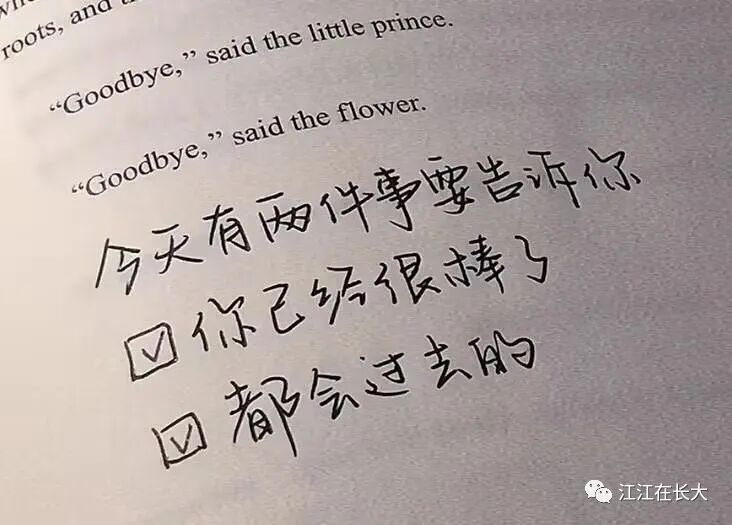 roots, and
“Goodbye,” said the little prince.
“Goodbye,” said the flower.
今天有两件事要告诉你
☑ 你已经很棒了
☑ 都会过去的
江江在长大